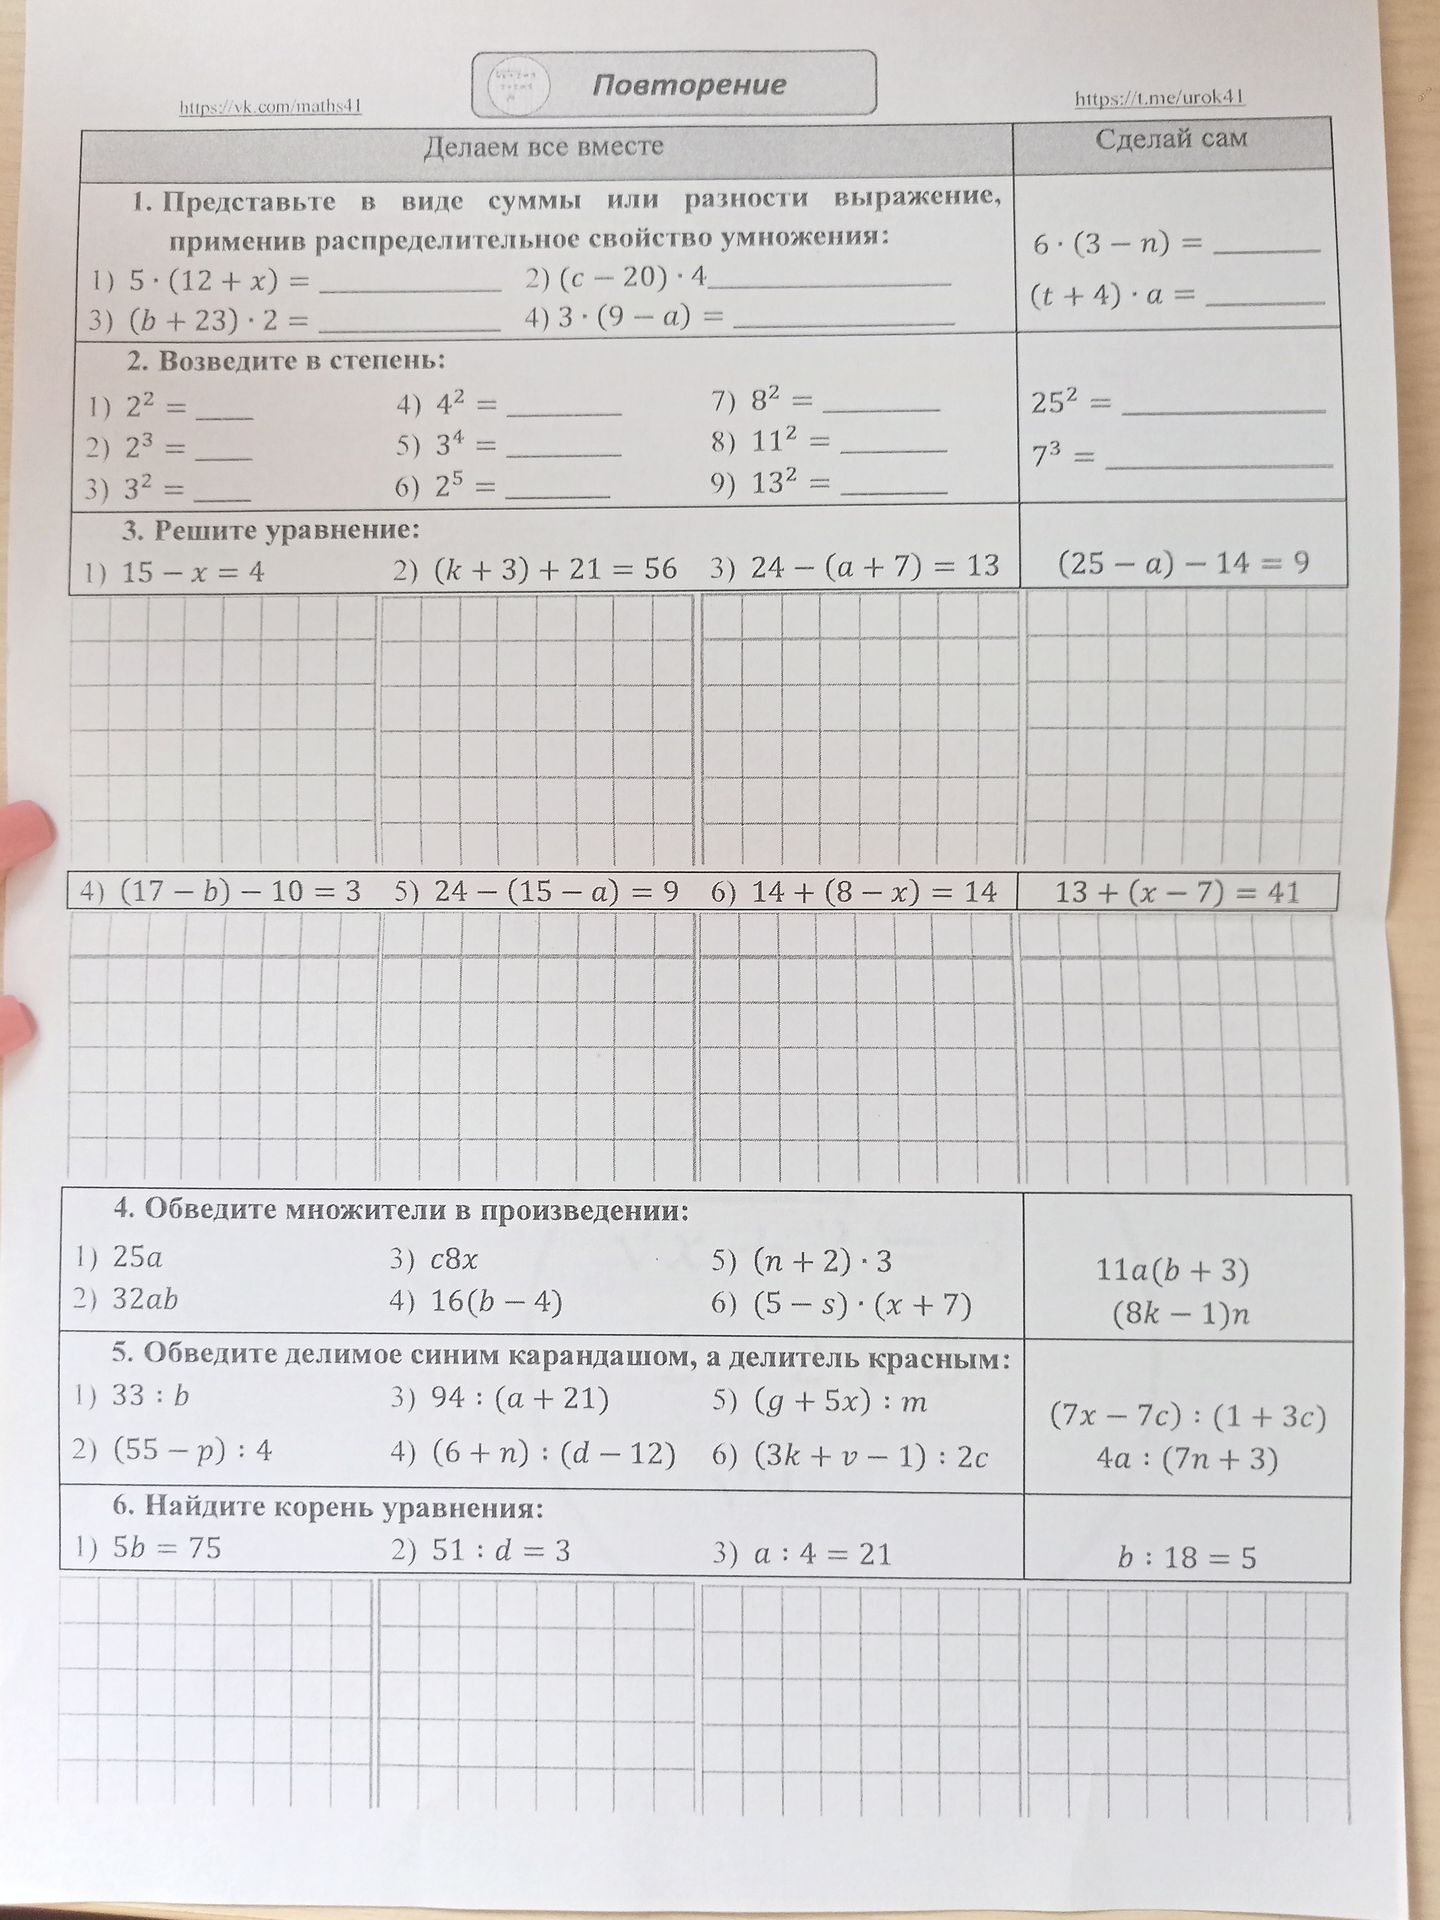 Повторение
https://vk.com/maths41
https://t.me/urok41
Делаем все вместе
Сделай сам
1. Представьте в виде суммы или разности выражение,
применив распределительное свойство умножения:
1) 5 · (12 + x) = ____________ 2) (c − 20) · 4________________
3) (b + 23) · 2 = ____________ 4) 3 · (9 − a) = _______________
6 · (3 − n) = _______
(t + 4) · a = ________
2. Возведите в степень:
1) 2² = ____ 4) 4² = ________ 7) 8² = ________
2) 2³ = ____ 5) 3⁴ = ________ 8) 11² = _______
3) 3² = ____ 6) 2⁵ = _______ 9) 13² = _______
25² = ______________
7³ = ________________
3. Решите уравнение:
1) 15 − x = 4 2) (k + 3) + 21 = 56 3) 24 − (a + 7) = 13
(25 − a) − 14 = 9
4) (17 − b) − 10 = 3 5) 24 − (15 − a) = 9 6) 14 + (8 − x) = 14
13 + (x − 7) = 41
4. Обведите множители в произведении:
1) 25a 3) c8x 5) (n + 2) · 3
2) 32ab 4) 16(b − 4) 6) (5 − s) · (x + 7)
11a(b + 3)
(8k − 1)n
5. Обведите делимое синим карандашом, а делитель красным:
1) 33 : b 3) 94 : (a + 21) 5) (g + 5x) : m
2) (55 − p) : 4 4) (6 + n) : (d − 12) 6) (3k + v − 1) : 2c
(7x − 7c) : (1 + 3c)
4a : (7n + 3)
6. Найдите корень уравнения:
1) 5b = 75 2) 51 : d = 3 3) a : 4 = 21
b : 18 = 5